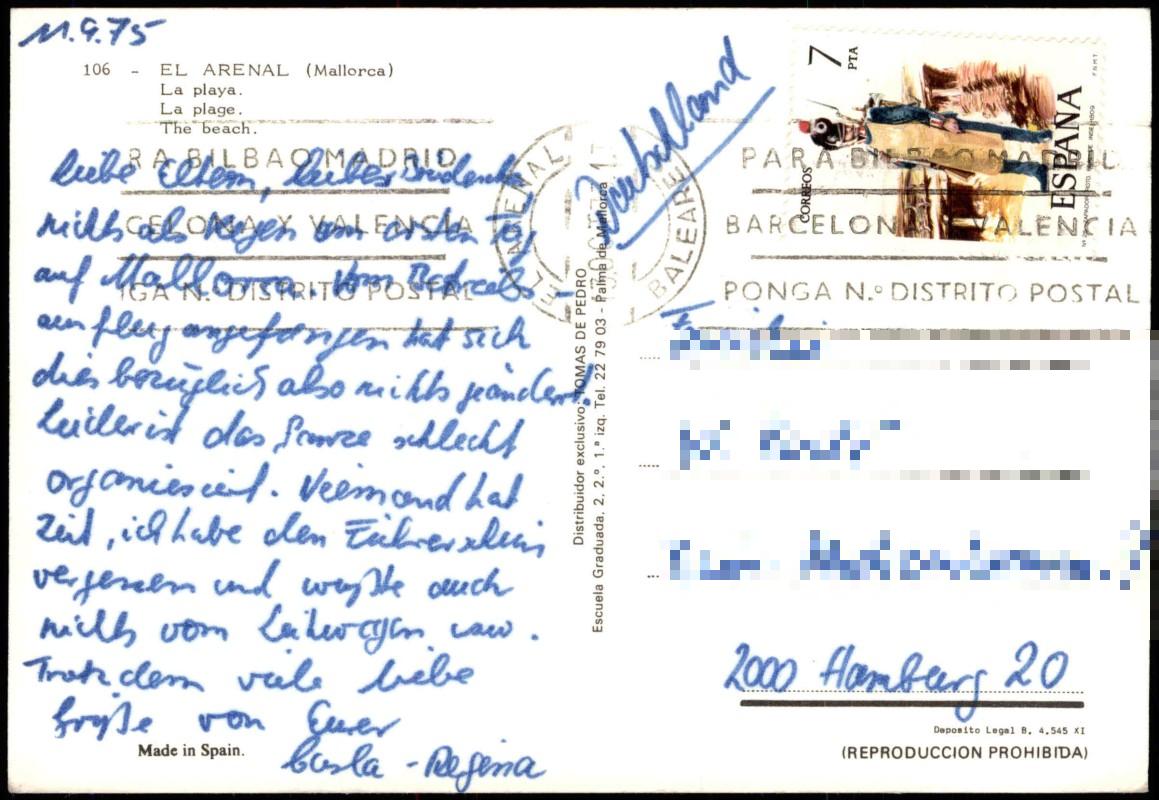 11.9.75
106 - EL ARENAL (Mallorca)
La playa.
La plage.
The beach.
liebe Eltern, lieber
nichts als Regen am ersten Tag
auf Mallorca. Vom
ausflug angefangen hat sich
diesbezüglich also nichts geändert!
Leider ist das Ganze schlecht
organiesiert. Niemand hat
Zeit, ich habe den Führerschein
vergessen und wußte auch
nichts vom Leihwagen usw.
Trotzdem viele liebe
Grüße von Eurer
Carla - Regina
Made in Spain.
Distribuidor exclusivo: TOMAS DE PEDRO
Escuela Graduada, 2, 2.º, 1.ª izq. Tel. 22 79 03 - Palma de Mallorca
Deutschland
7 PTA
CORREOS
ESPAÑA
F.N.M.T.
RA BILBAO MADRID
CELONA Y VALENCIA
NGA N.º DISTRITO POSTAL
EL ARENAL
BALEARES
PARA BILBAO MADRID
BARCELONA Y VALENCIA
PONGA N.º DISTRITO POSTAL
2000 Hamburg 20
Deposito Legal B. 4.545 XI
(REPRODUCCION PROHIBIDA)